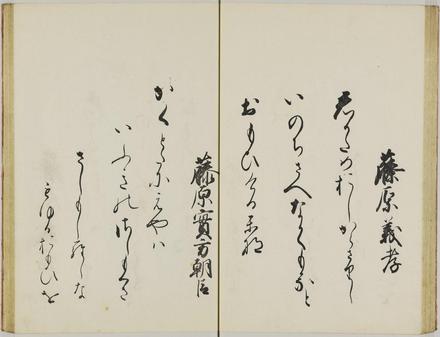 藤原義孝
君かためおしからさりし
いのちさへなかくもかなと
おもひけるかな
藤原實方朝臣
かくとたにえやハ
いふきのさしもくさ
さしもしらしな
もゆるおもひを